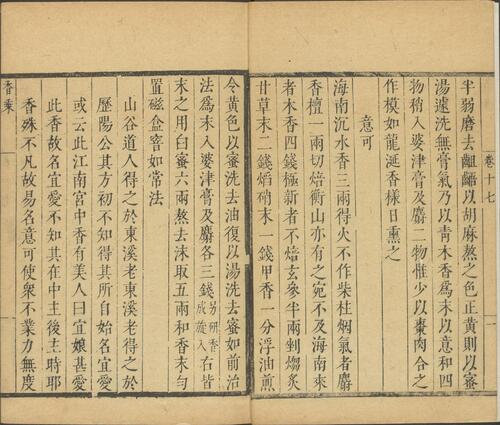 卷十七
一
半弱磨去齟齬以胡麻熬之色正黃則以蜜
湯遽洗無膏氣乃以青木香為末以意和四
物稍入婆津膏及麝二物惟少以棗肉合之
作模如龍涎香樣日熏之
意可
海南沉水香三兩得火不作柴桂烟氣者麝
香檀一兩切焙衡山亦有之宛不及海南來
者木香四錢極新者不焙玄參半兩剉煼炙
甘草末二錢焰硝末一錢甲香一分浮油煎
令黃色以蜜洗去油復以湯洗去蜜如前治
法為末入婆津膏及麝各三錢另研香成旋入右皆
末之用白蜜六兩熬去沫取五兩和香末勻
置磁盒窨如常法
山谷道人得之於東溪老東溪老得之於
歷陽公其方初不知得其所自始名宜愛
或云此江南宮中香有美人曰宜娘甚愛
此香故名宜愛不知其在中主後主時耶
香殊不凡故易名意可使眾不業力無度
香乘